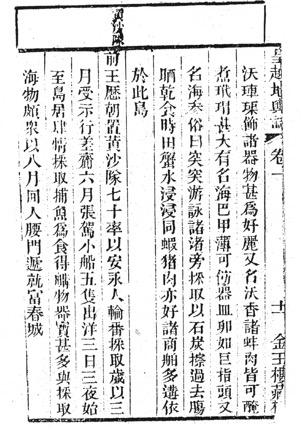 皇越地輿誌 卷一 十一 金玉樓藏板
沙隊
沃璉球飾諸器物甚爲好麗又名沃香諸蚌肉皆可醃
煮玳瑁甚大有名海巴甲薄可飾器皿卵如巨指頭又
名海參俗曰突突游詠諸渚旁採取以石炭擦過去膓
晒乾食時田蟹水浸浸同蝦猪肉亦好諸商舶多遘依
於此島
前王歷朝置黃沙隊七十率以安永人輪番採取歲以三
月受示行差齎六月張駕小船五隻出洋三日三夜始
至島居肆情採取捕魚爲食得艚物器寶甚多與採取
海物頗衆以八月回入腰門遞就富春城